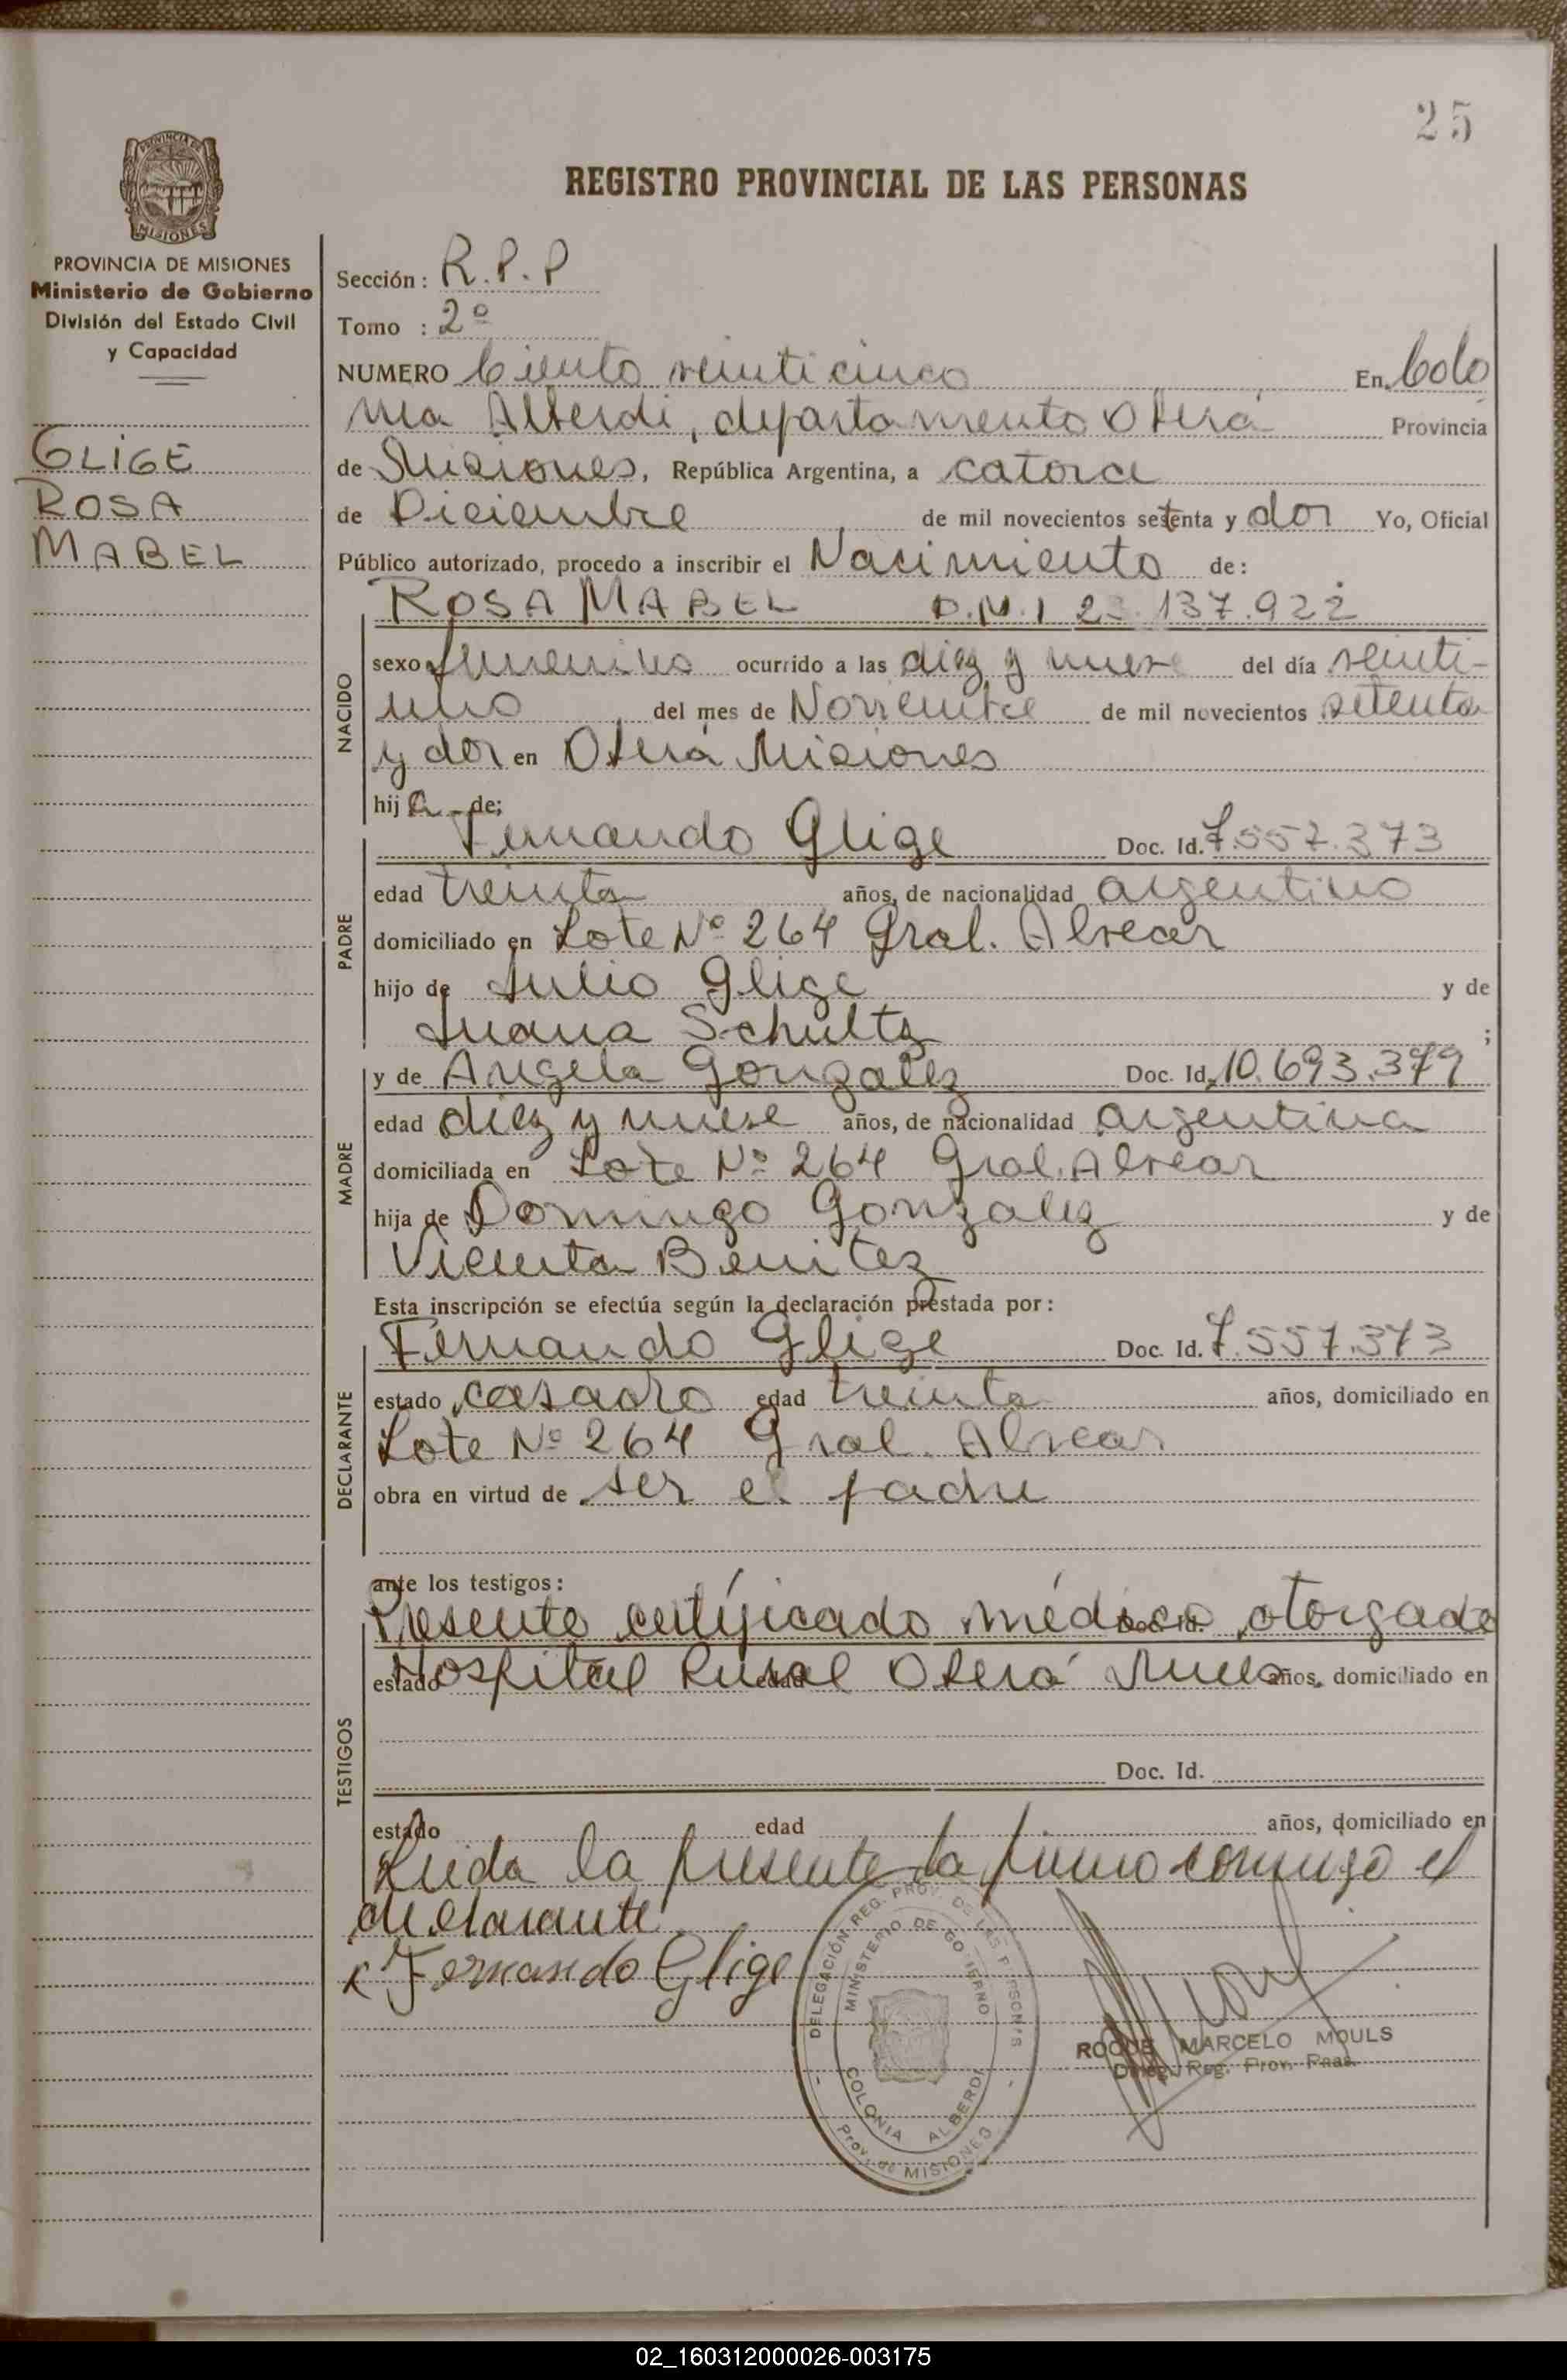 25
PROVINCIA DE MISIONES
Ministerio de Gobierno
División del Estado Civil
y Capacidad
GLIGE
ROSA
MABEL
REGISTRO PROVINCIAL DE LAS PERSONAS
Sección: R.P.P
Tomo : 2º
NUMERO Ciento veinticinco En Colo
nia Alberdi, departamento Oberá Provincia
de Misiones, República Argentina, a catorce
de Diciembre de mil novecientos setenta y dos Yo, Oficial
Público autorizado, procedo a inscribir el Nacimiento de:
ROSA MABEL D.N.I 23.137.922
NACIDO
sexo femenino ocurrido a las diez y nueve del día veinti-
uno del mes de Noviembre de mil novecientos setenta
y dos en Oberá Misiones
hija de;
PADRE
Fernando Glige Doc. Id. 7.557.373
edad treinta años, de nacionalidad argentino
domiciliado en Lote Nº 264 Gral. Alvear
hijo de Julio Glige y de
Juana Schultz ;
MADRE
y de Angela Gonzalez Doc. Id. 10.693.379
edad diez y nueve años, de nacionalidad argentina
domiciliada en Lote Nº 264 Gral. Alvear
hija de Domingo Gonzalez y de
Vicenta Benitez
Esta inscripción se efectúa según la declaración prestada por:
DECLARANTE
Fernando Glige Doc. Id. 7.557.373
estado casado edad treinta años, domiciliado en
Lote Nº 264 Gral. Alvear
obra en virtud de ser el padre
TESTIGOS
ante los testigos:
Presente certificado médico otorgado Doc. Id.
estado Hospital Rural edad Oberá años, domiciliado en
Doc. Id.
estado edad años, domiciliado en
Leida la presente la firmo conmigo el
declarante
Fernando Glige
DELEGACIÓN REG. PROV. DE LAS PERSONAS
MINISTERIO DE GOBIERNO
COLONIA ALBERDI
Prov. de MISIONES
ROQUE MARCELO MOULS
Deleg. Reg. Prov. Pnas.
02_160312000026-003175